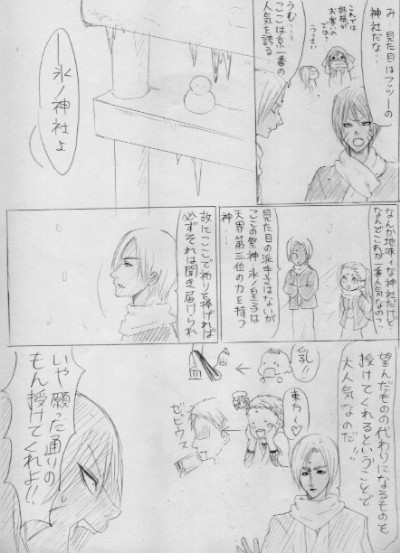 み…見た目はフツーの
神社だな…
これでは
抵抗が
お客への
では?
うっさい
うむ!
ここは京一番の
人気を誇る
氷ノ神社よ
なんか地味〜な神社だけど
なんでこれが一番人気なの?
見た目の派手さはないが
ここの祭神・氷ノ皇子は
天界第三位の力を持つ
神…
故にここで祈りを捧げれば
必ずそれは聞き届けられ
望んだものの代わりになるものを
授けてくれるということで
大人気なのだ!!
乳!!
東カ〜♡
ゼビウス
いや願った通りの
もん授けてくれよ!!